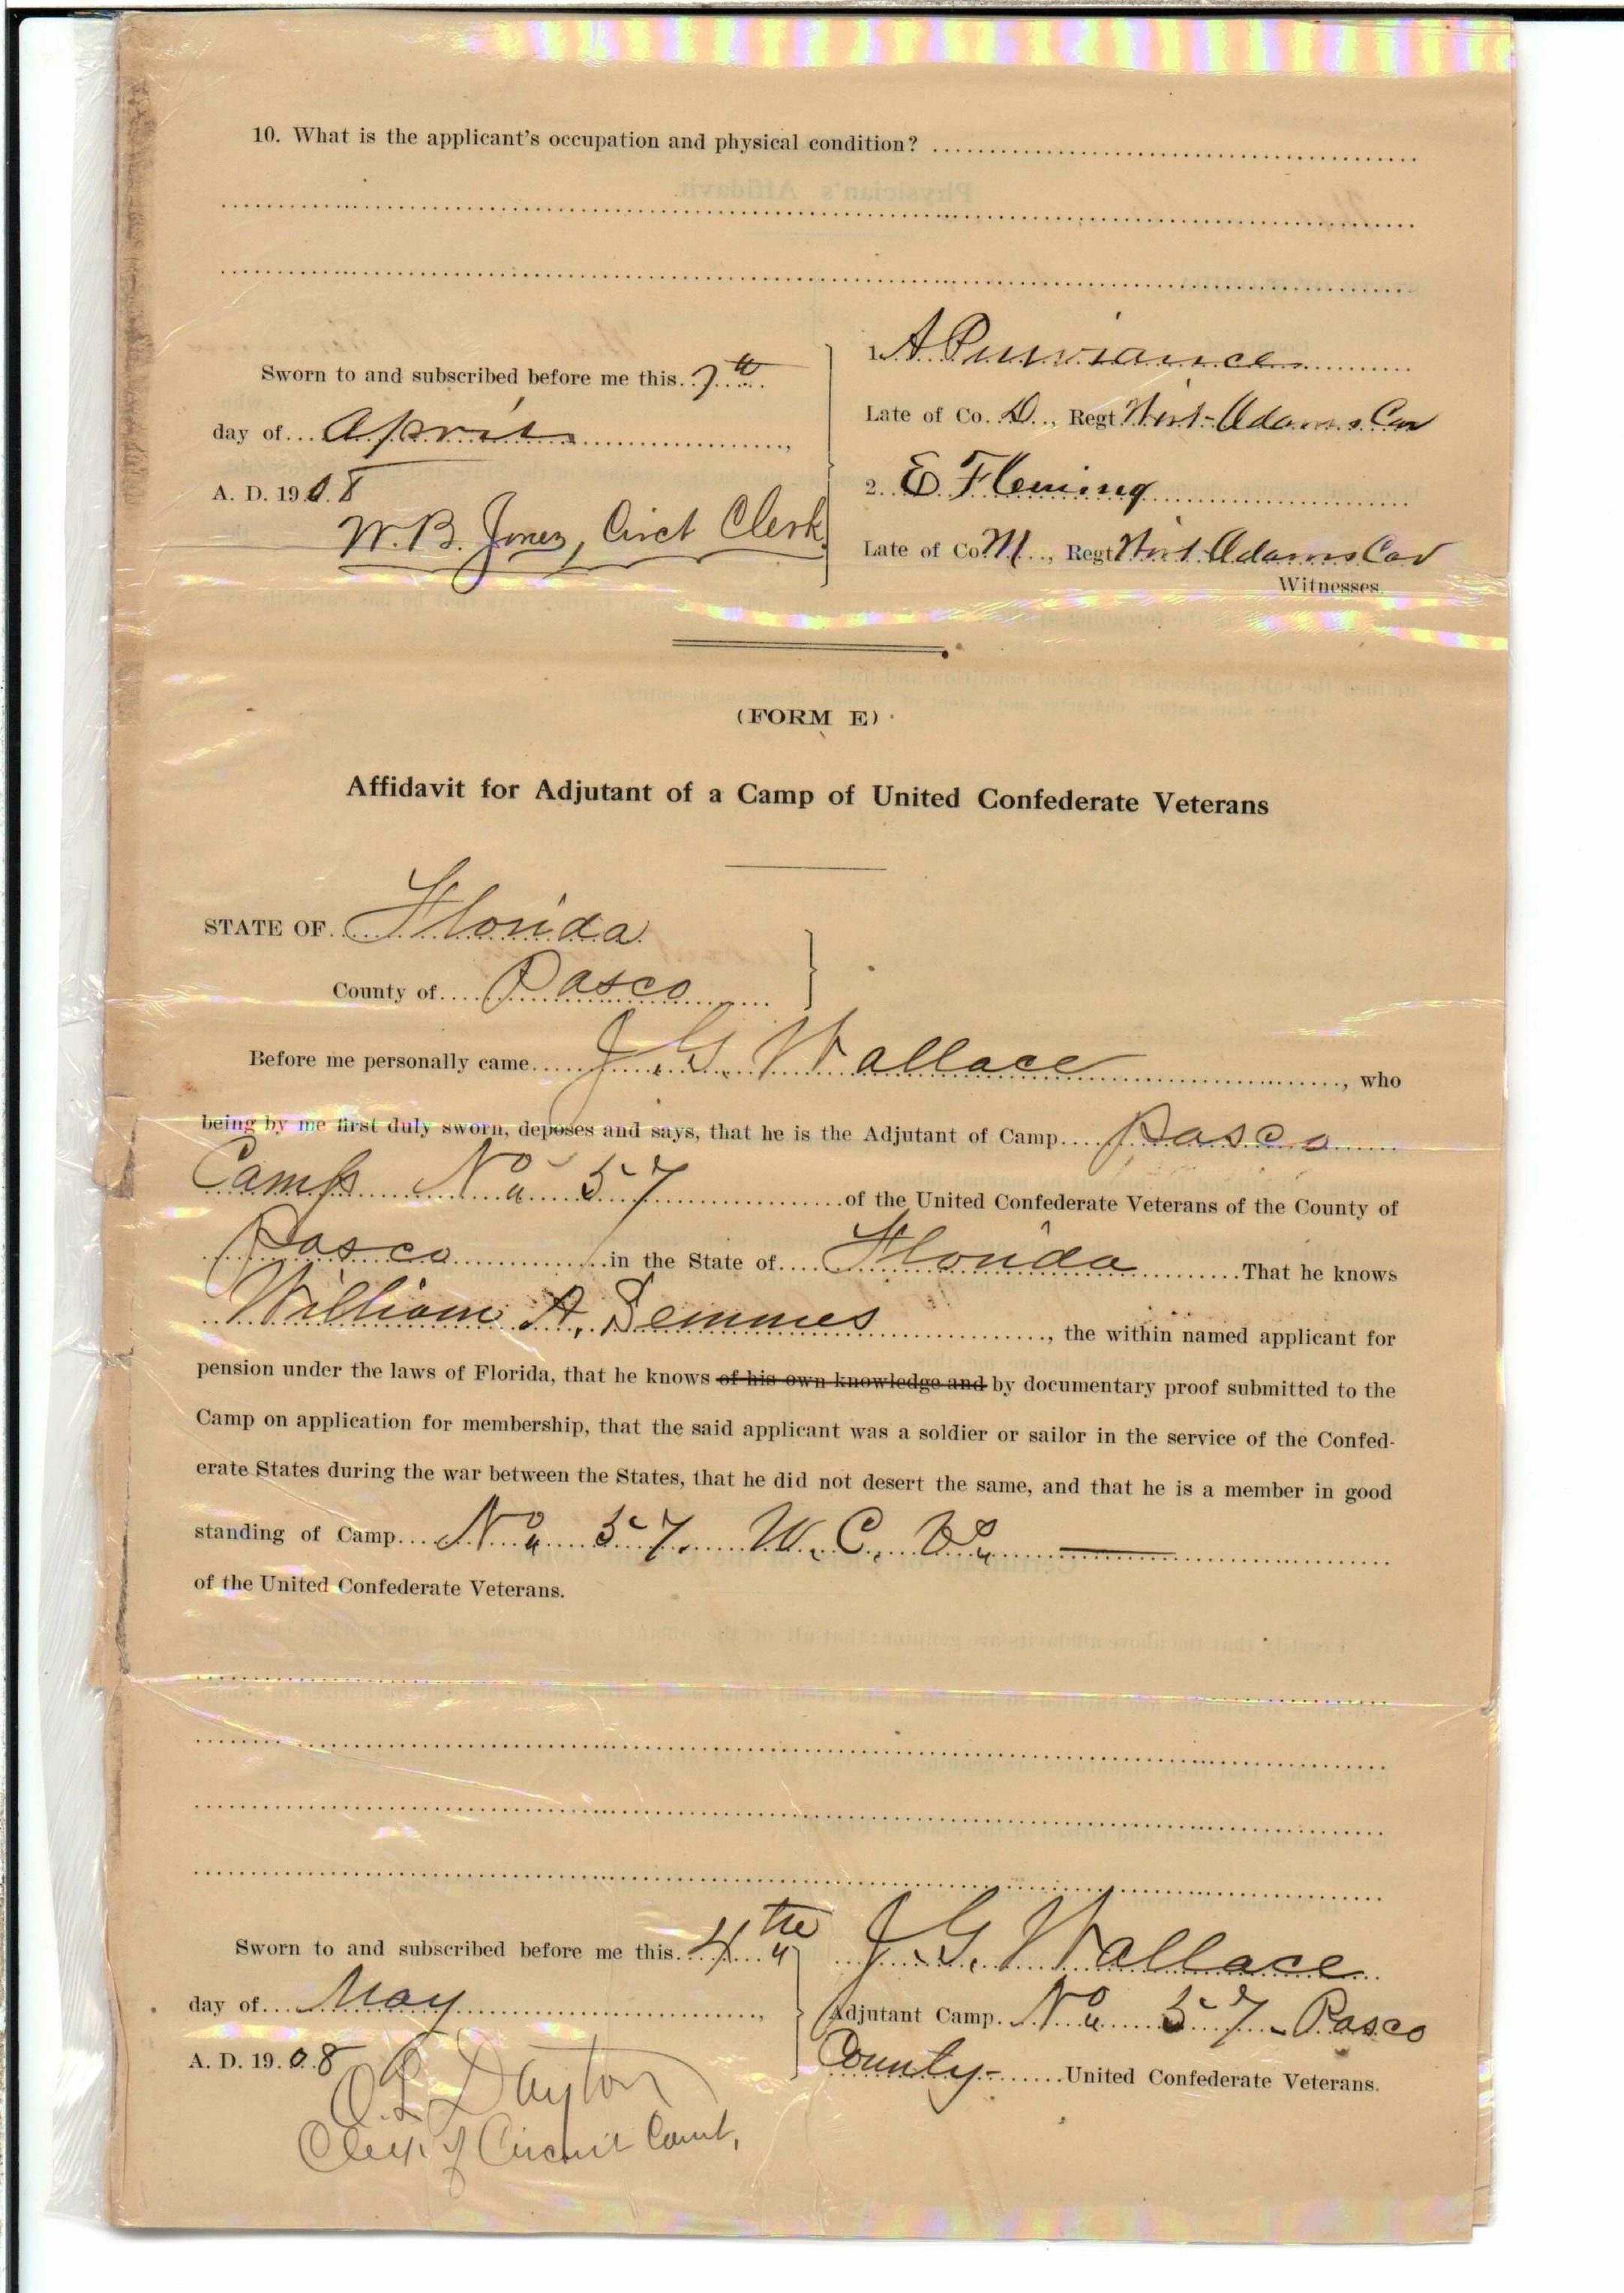 10. What is the applicant's occupation and physical condition?
Sworn to and subscribed before me this 7th
day of April,
A. D. 1908
W. B. Jones, Circt Clerk
1. A Purviance
Late of Co. D., Regt Wirt Adams Cav
2. E Fleming
Late of Co. M., Regt Wirt Adams Cav
Witnesses.
(FORM E)
Affidavit for Adjutant of a Camp of United Confederate Veterans
STATE OF Florida
County of Pasco
Before me personally came J. G. Wallace, who
being by me first duly sworn, deposes and says, that he is the Adjutant of Camp Pasco
Camp No 57 of the United Confederate Veterans of the County of
Pasco in the State of Florida That he knows
William A. Semmes, the within named applicant for
pension under the laws of Florida, that he knows of his own knowledge and by documentary proof submitted to the
Camp on application for membership, that the said applicant was a soldier or sailor in the service of the Confed-
erate States during the war between the States, that he did not desert the same, and that he is a member in good
standing of Camp No 57. U. C. V.
of the United Confederate Veterans.
Sworn to and subscribed before me this 4th
day of May,
A. D. 1908
Dayton
Clerk of Circuit Court,
J. G. Wallace
Adjutant Camp No 57 - Pasco
County - United Confederate Veterans.